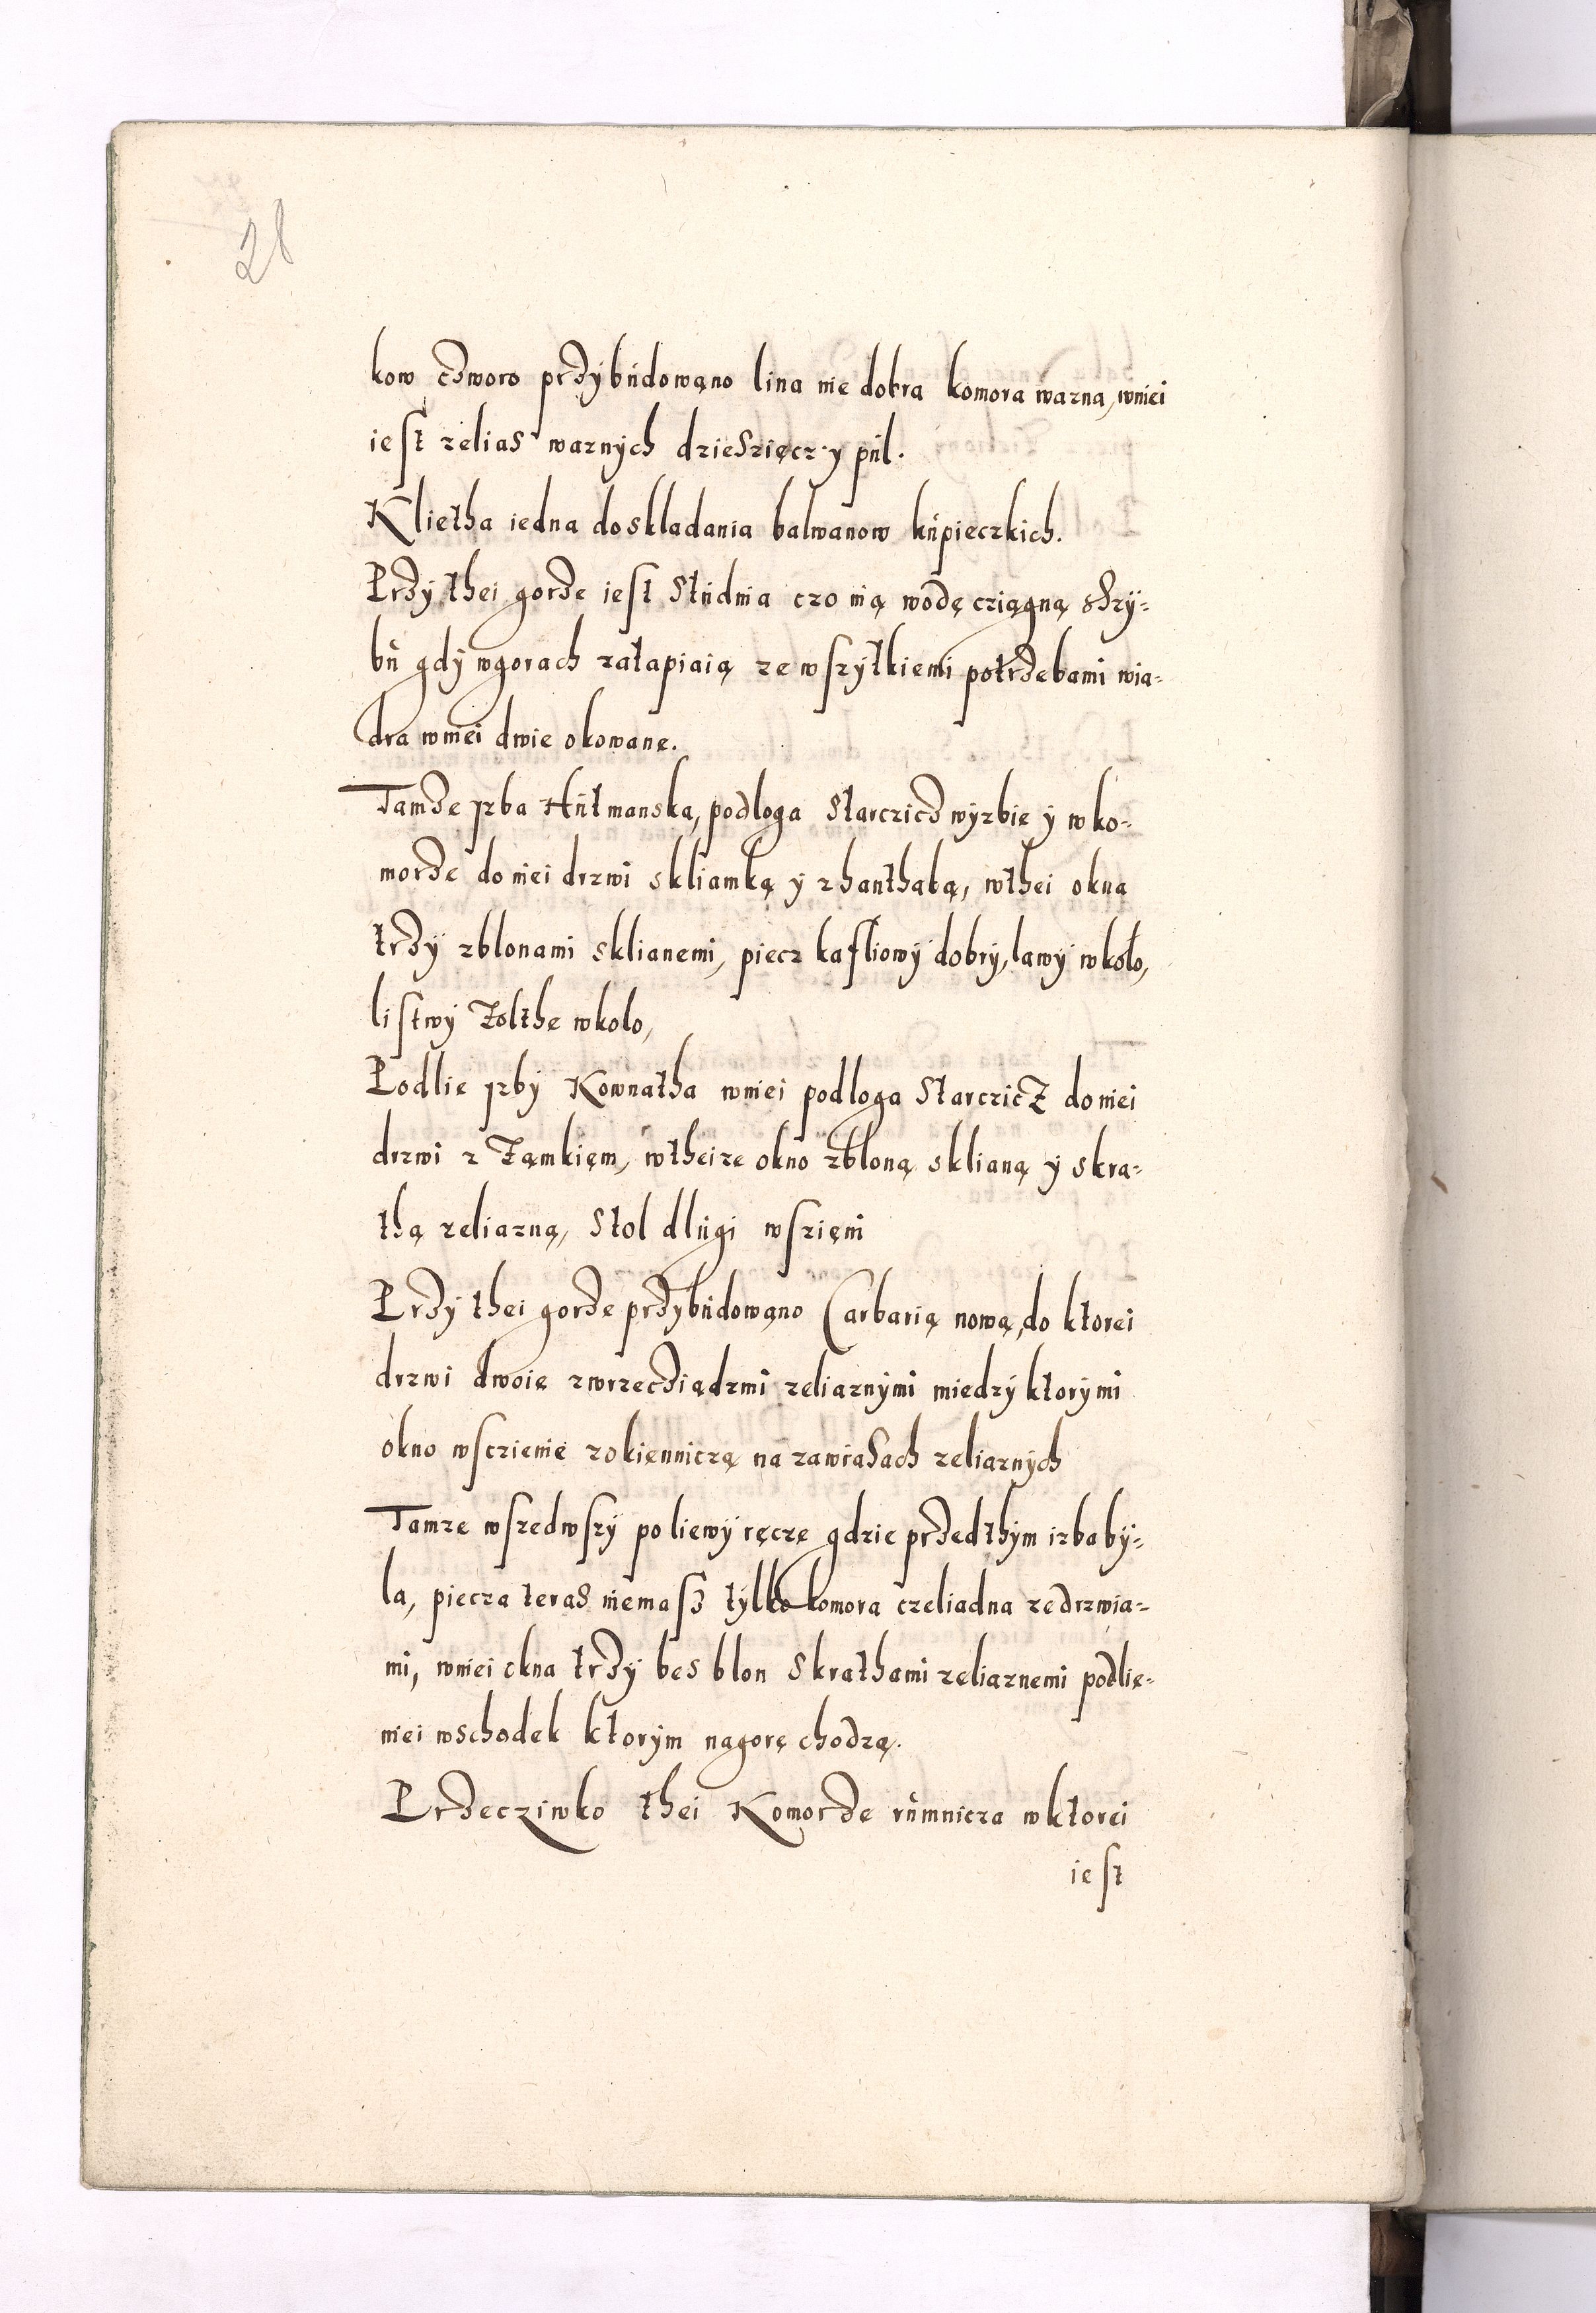 28
kow czworo przybudowąno lina nie dobra komora warna, wniei
iest zelias warnych dzieszięcz y pul.
Klietha iedna do skladania balwanow kupieczkich.
Przy thei gorze iest Studnia czo nią wodę cziągną Szy-
bu gdy wgorach zatapiaią ze wszytkiemi potrzebami wia-
dra wniei dwie okowanę.
Tamze yzba Hutmanska, podloga Starczicz wyzbie y wko-
morze do niei drzwi skliamką y zhanthabą, wthei okna
trzy zblonami sklianemi, piecz kafliowy dobry, lawy wkoło,
listwy Żolthe wkolo,
Podlie yzby Kownatha wniei podloga Starczicz do niei
drzwi z Zamkięm, wtheize okno zbloną sklianą y skra-
thą zeliazną, Stol dlugi wszięni
Przy thei gorze przybudowąno Carbarią nową, do ktorei
drzwi dwoię zwrzecziądzmi zeliaznymi miedzy ktorymi
okno wsczienie zokięnniczą na zawiasach zeliaznych
Tamze wszedwszy po liewy ręczę gdzie przedthym izba by-
la, piecza teras niemasz tylko komora czeliadna zedrzwia-
mi, wniei okna trzy bes blon Skrathami zeliaznemi podlie-
niei wschodek ktorym nagorę chodzą.
Przeciwko thei Komorze rumnicza wktorei
iest